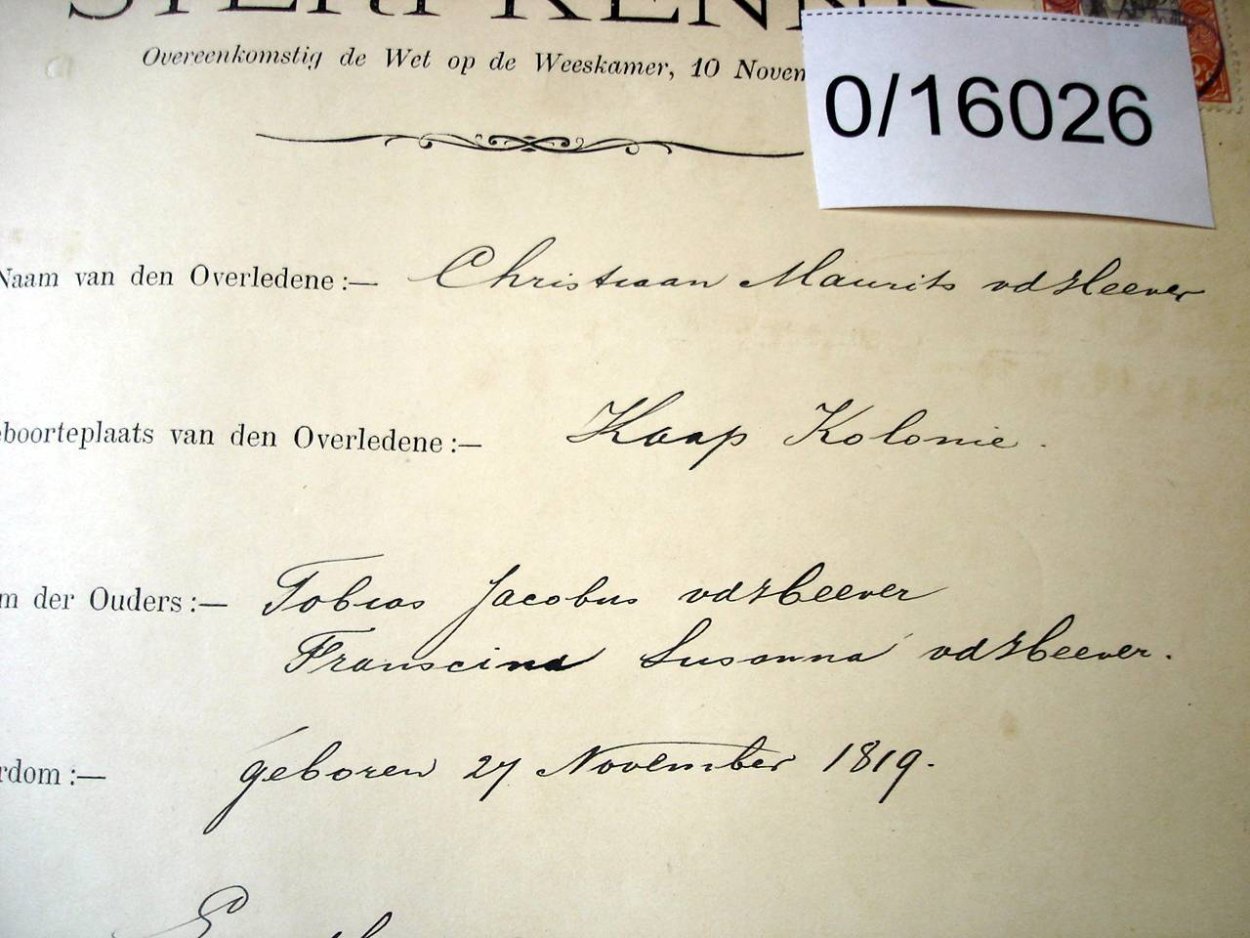 STERFKENNIS
Overeenkomstig de Wet op de Weeskamer, 10 Novem
0/16026
Naam van den Overledene:— Christiaan Maurits vd Heever
eboorteplaats van den Overledene:— Kaap Kolonie.
m der Ouders:— Tobias Jacobus vd Heever
Franscina Susanna vd Heever.
rdom:— geboren 27 November 1819.